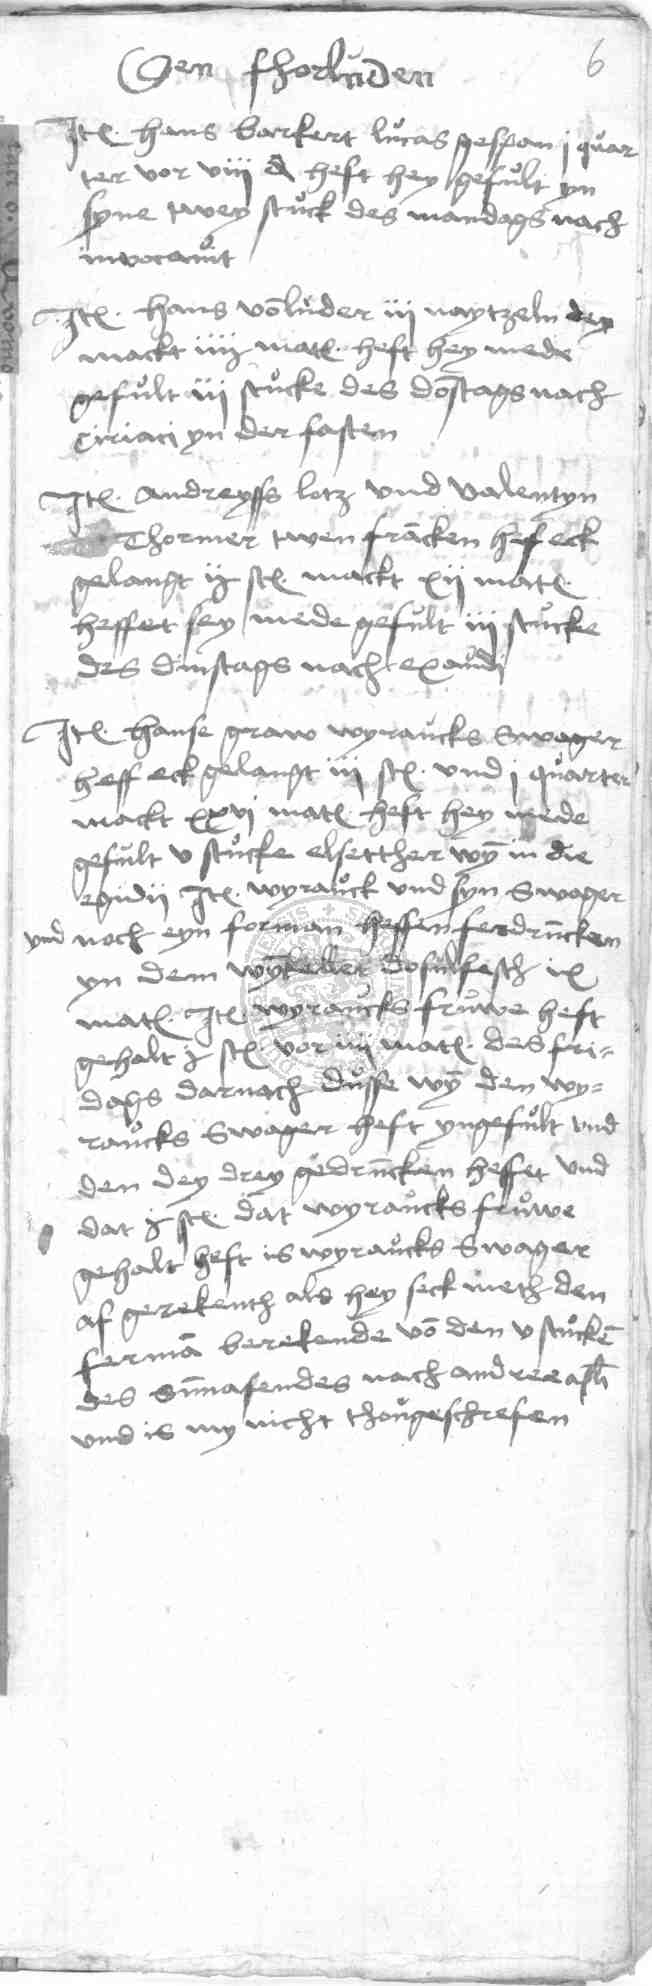 Den fhorluden
6
Itē. Hans barkert lucas gespan j quar
ter vor viij d heft hey gefult yn
syne twey stuck des mandags nach
invocavit
Itē. Hans vōluder iij naytzeln dey
mackt iiij matē. heft hey mede
gefult iij stucke des dōstags nach
Ciriaci yn der fasten
Itē. Andreyss lotz und Valentyn
Thormer twen francken hef eck
gelangt ij stē. mackt xij matē.
heffet sey mede gefult iij stucke
des dinstags nach exaudi
Itē. Hanse graw wyraucks Swager
heff eck gelangt iij stē. und j quarter
mackt xxvj matē heft hey mede
gefult v stucke elsetther wȳ in die
egidij Itē. wyrauck und syn Swager
und noch eyn forman heffen ferdruncken
yn dem wȳkeller dosulfesth ix
matē. Itē. wyraucks fruwe heft
gehalt j stē. vor iiij matē. des fri-
dags darnach dusse wȳ den wy-
raucks Swager heft yngefult und
den dey drey gedruncken heffet und
dat j stē. dat wyraucks fruwe
gehalt heft is wyraucks Swager
af gerekenth als hey seck meth den
fermā berekende vō den v stuckē
des Sunnafendes nach andree apli
und is my nicht thougeschrefen